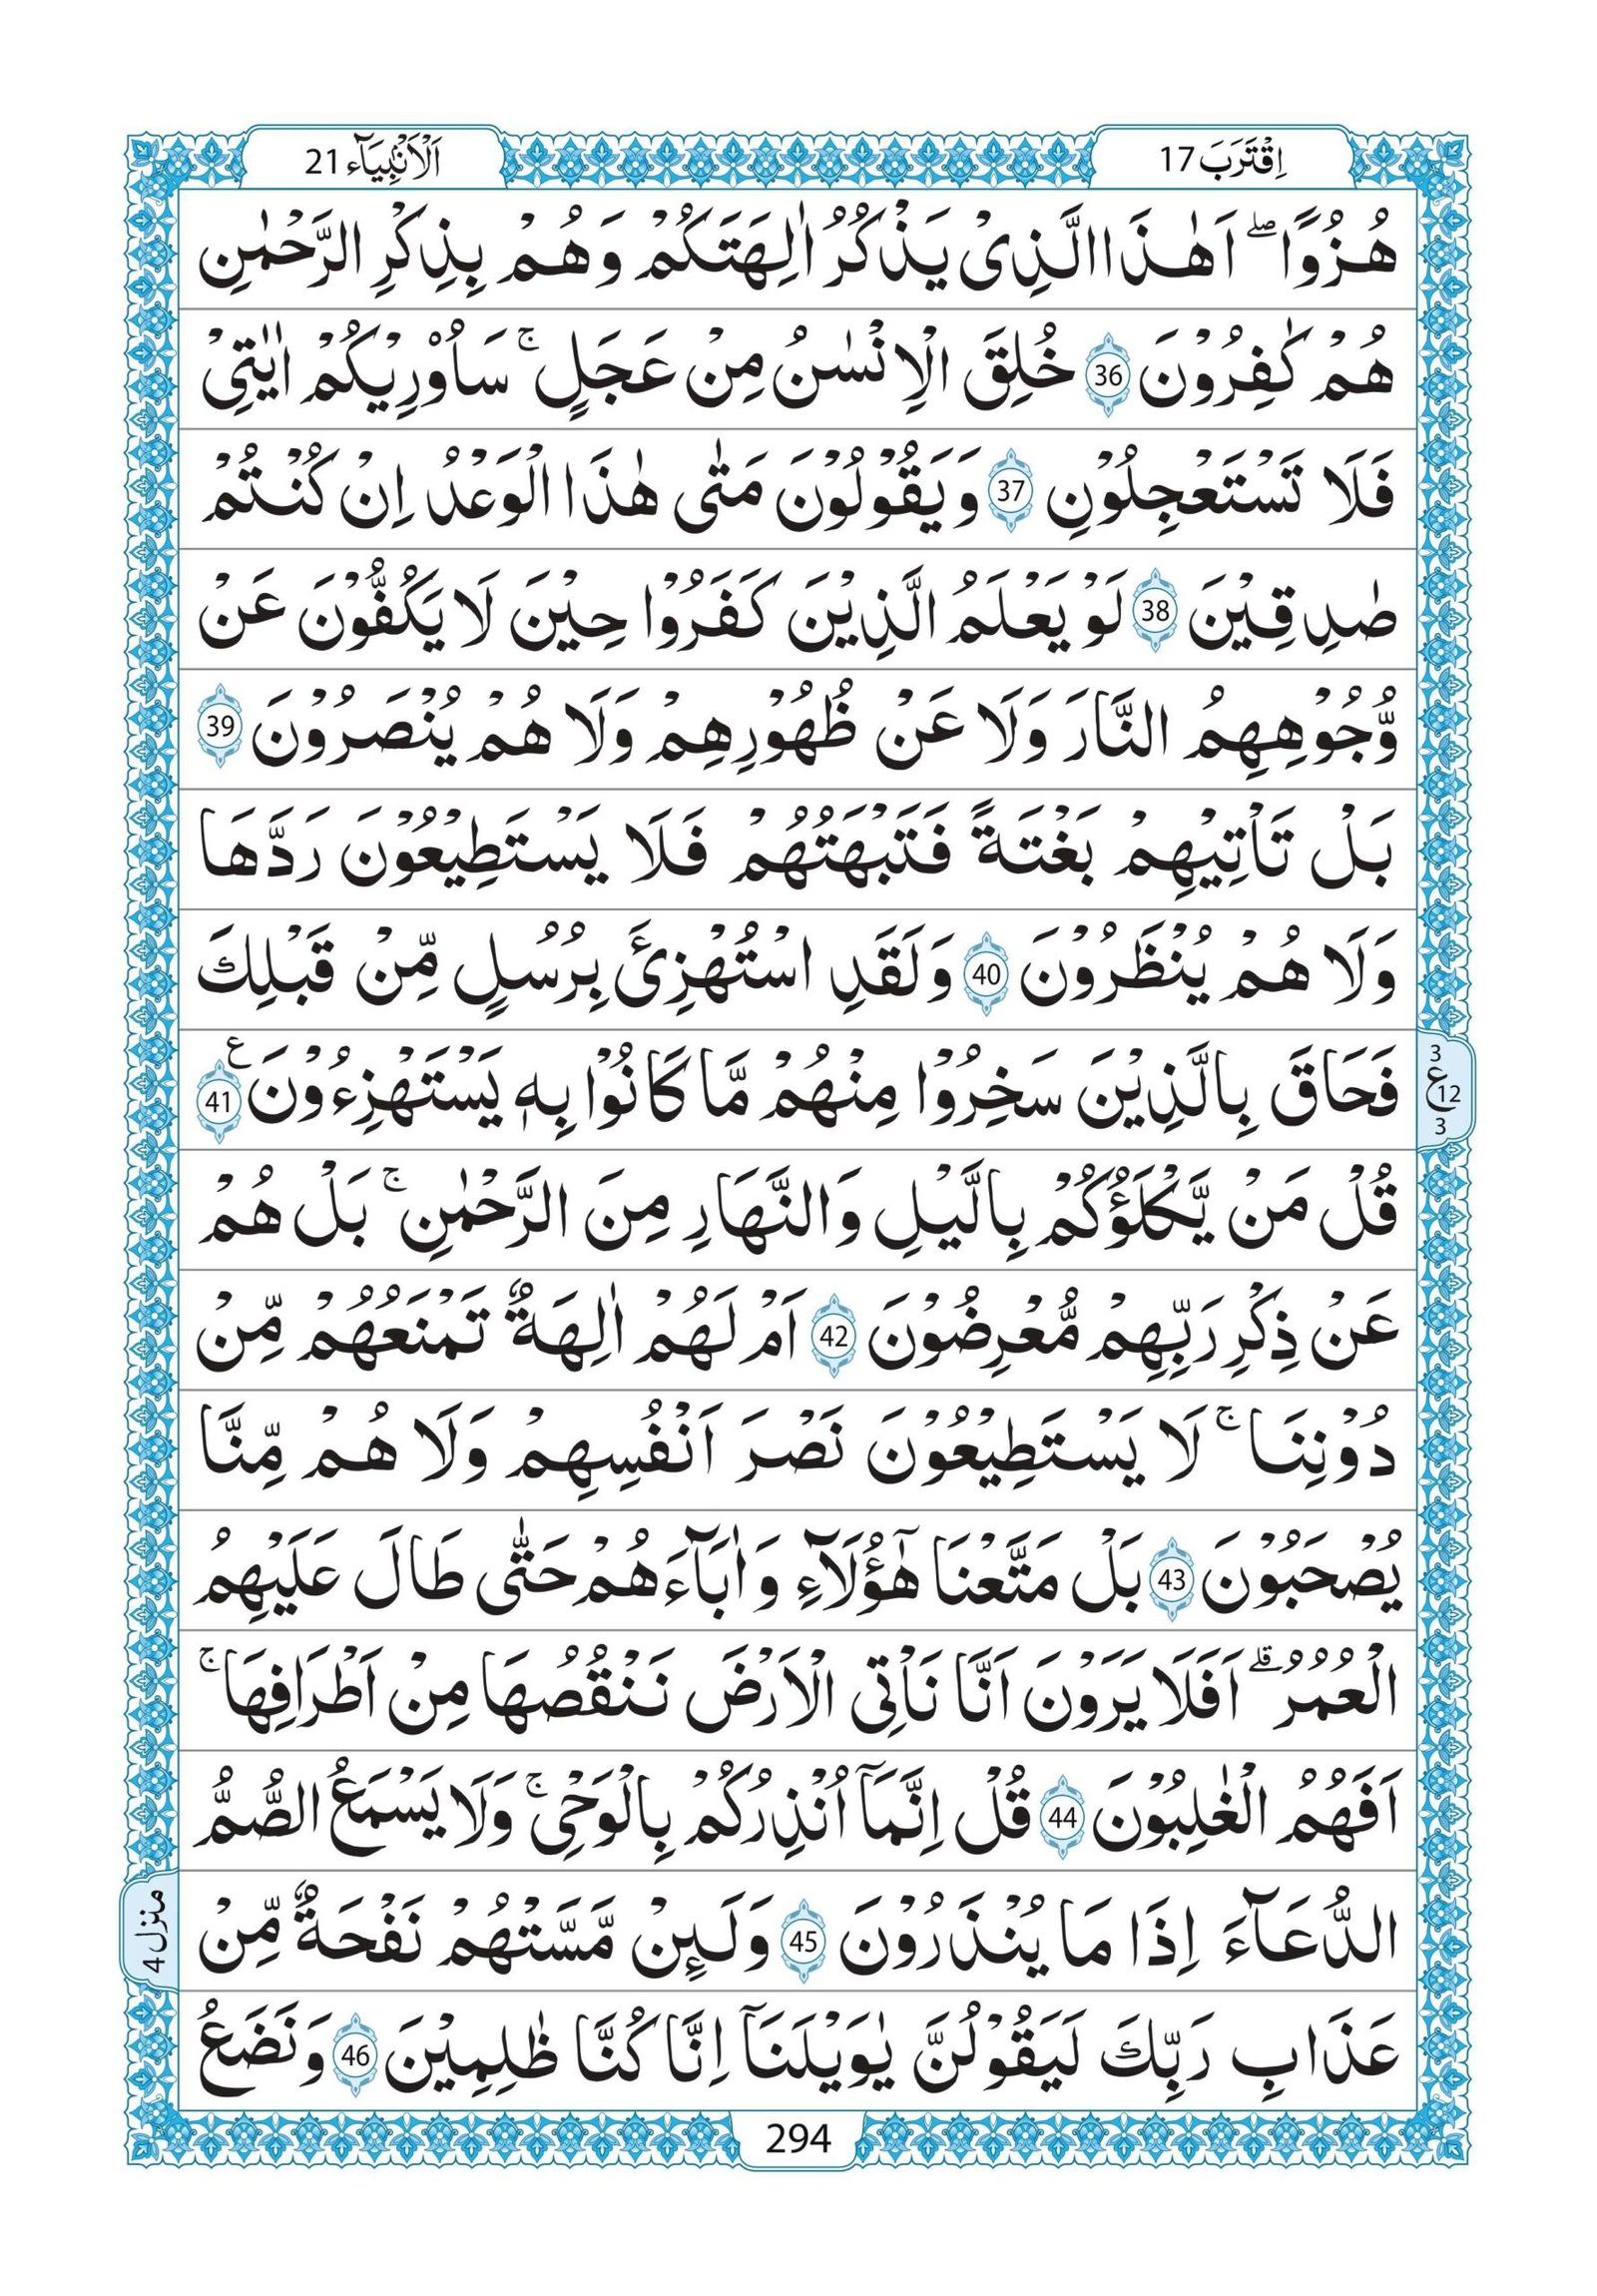 اِقْتَرَبَ 17
اَلْاَنْۢبِيَآء 21
هُـزُوًا ۖ اَهٰـذَا الَّـذِىْ يَـذْكُرُ اٰلِـهَتَكُمْ وَهُـمْ بِذِكْرِ الرَّحْمٰنِ
هُمْ كٰفِرُوْنَ 36 خُلِقَ الْاِنْسٰنُ مِنْ عَجَلٍ ۚ سَاُورِيْكُمْ اٰيٰتِىْ
فَلَا تَسْتَعْجِلُوْنِ 37 وَيَقُوْلُوْنَ مَتٰى هٰذَا الْوَعْدُ اِنْ كُنْـتُمْ
صٰدِقِيْنَ 38 لَوْ يَعْلَمُ الَّذِيْنَ كَفَرُوْا حِيْنَ لَا يَكُفُّوْنَ عَنْ
وُّجُوْهِهِمُ النَّارَ وَلَا عَنْ ظُهُوْرِهِمْ وَلَا هُمْ يُنْصَرُوْنَ 39
بَـلْ تَـاْتِيْهِمْ بَغْتَةً فَتَبْهَتُهُمْ فَلَا يَسْتَطِيْعُوْنَ رَدَّهَا
وَلَا هُمْ يُنْظَرُوْنَ 40 وَلَقَدِ اسْتُهْزِئَ بِرُسُلٍ مِّنْ قَبْلِكَ
فَحَاقَ بِالَّذِيْنَ سَخِرُوْا مِنْهُمْ مَّا كَانُوْا بِهٖ يَسْتَهْزِءُوْنَ ۧ 41
3
ع 12
3
قُلْ مَنْ يَّكْلَؤُكُمْ بِالَّيْـلِ وَالنَّهَارِ مِنَ الرَّحْمٰنِ ۚ بَلْ هُمْ
عَنْ ذِكْرِ رَبِّهِمْ مُّعْرِضُوْنَ 42 اَمْ لَهُمْ اٰلِهَةٌ تَمْنَعُهُمْ مِّنْ
دُوْنِنَـا ۚ لَا يَسْتَطِيْعُوْنَ نَصْرَ اَنْفُسِهِمْ وَلَا هُمْ مِّنَّا
يُصْحَبُوْنَ 43 بَلْ مَتَّعْنَا هٰٓؤُلَآءِ وَاٰبَآءَهُمْ حَتّٰى طَالَ عَلَيْهِمُ
الْعُمُرُ ۗ اَفَلَا يَرَوْنَ اَنَّا نَاْتِى الْاَرْضَ نَـنْقُصُهَا مِنْ اَطْرَافِهَا ۚ
اَفَهُمُ الْغٰلِبُوْنَ 44 قُلْ اِنَّمَآ اُنْذِرُكُمْ بِالْوَحْىِ ۚ وَلَا يَسْمَعُ الصُّمُّ
الدُّعَآءَ اِذَا مَا يُنْذَرُوْنَ 45 وَلَـئِنْ مَّسَّتْهُمْ نَفْحَةٌ مِّنْ
منزل 4
عَذَابِ رَبِّكَ لَيَقُوْلُنَّ يٰوَيْلَنَآ اِنَّا كُنَّا ظٰلِمِيْنَ 46 وَنَضَعُ
294